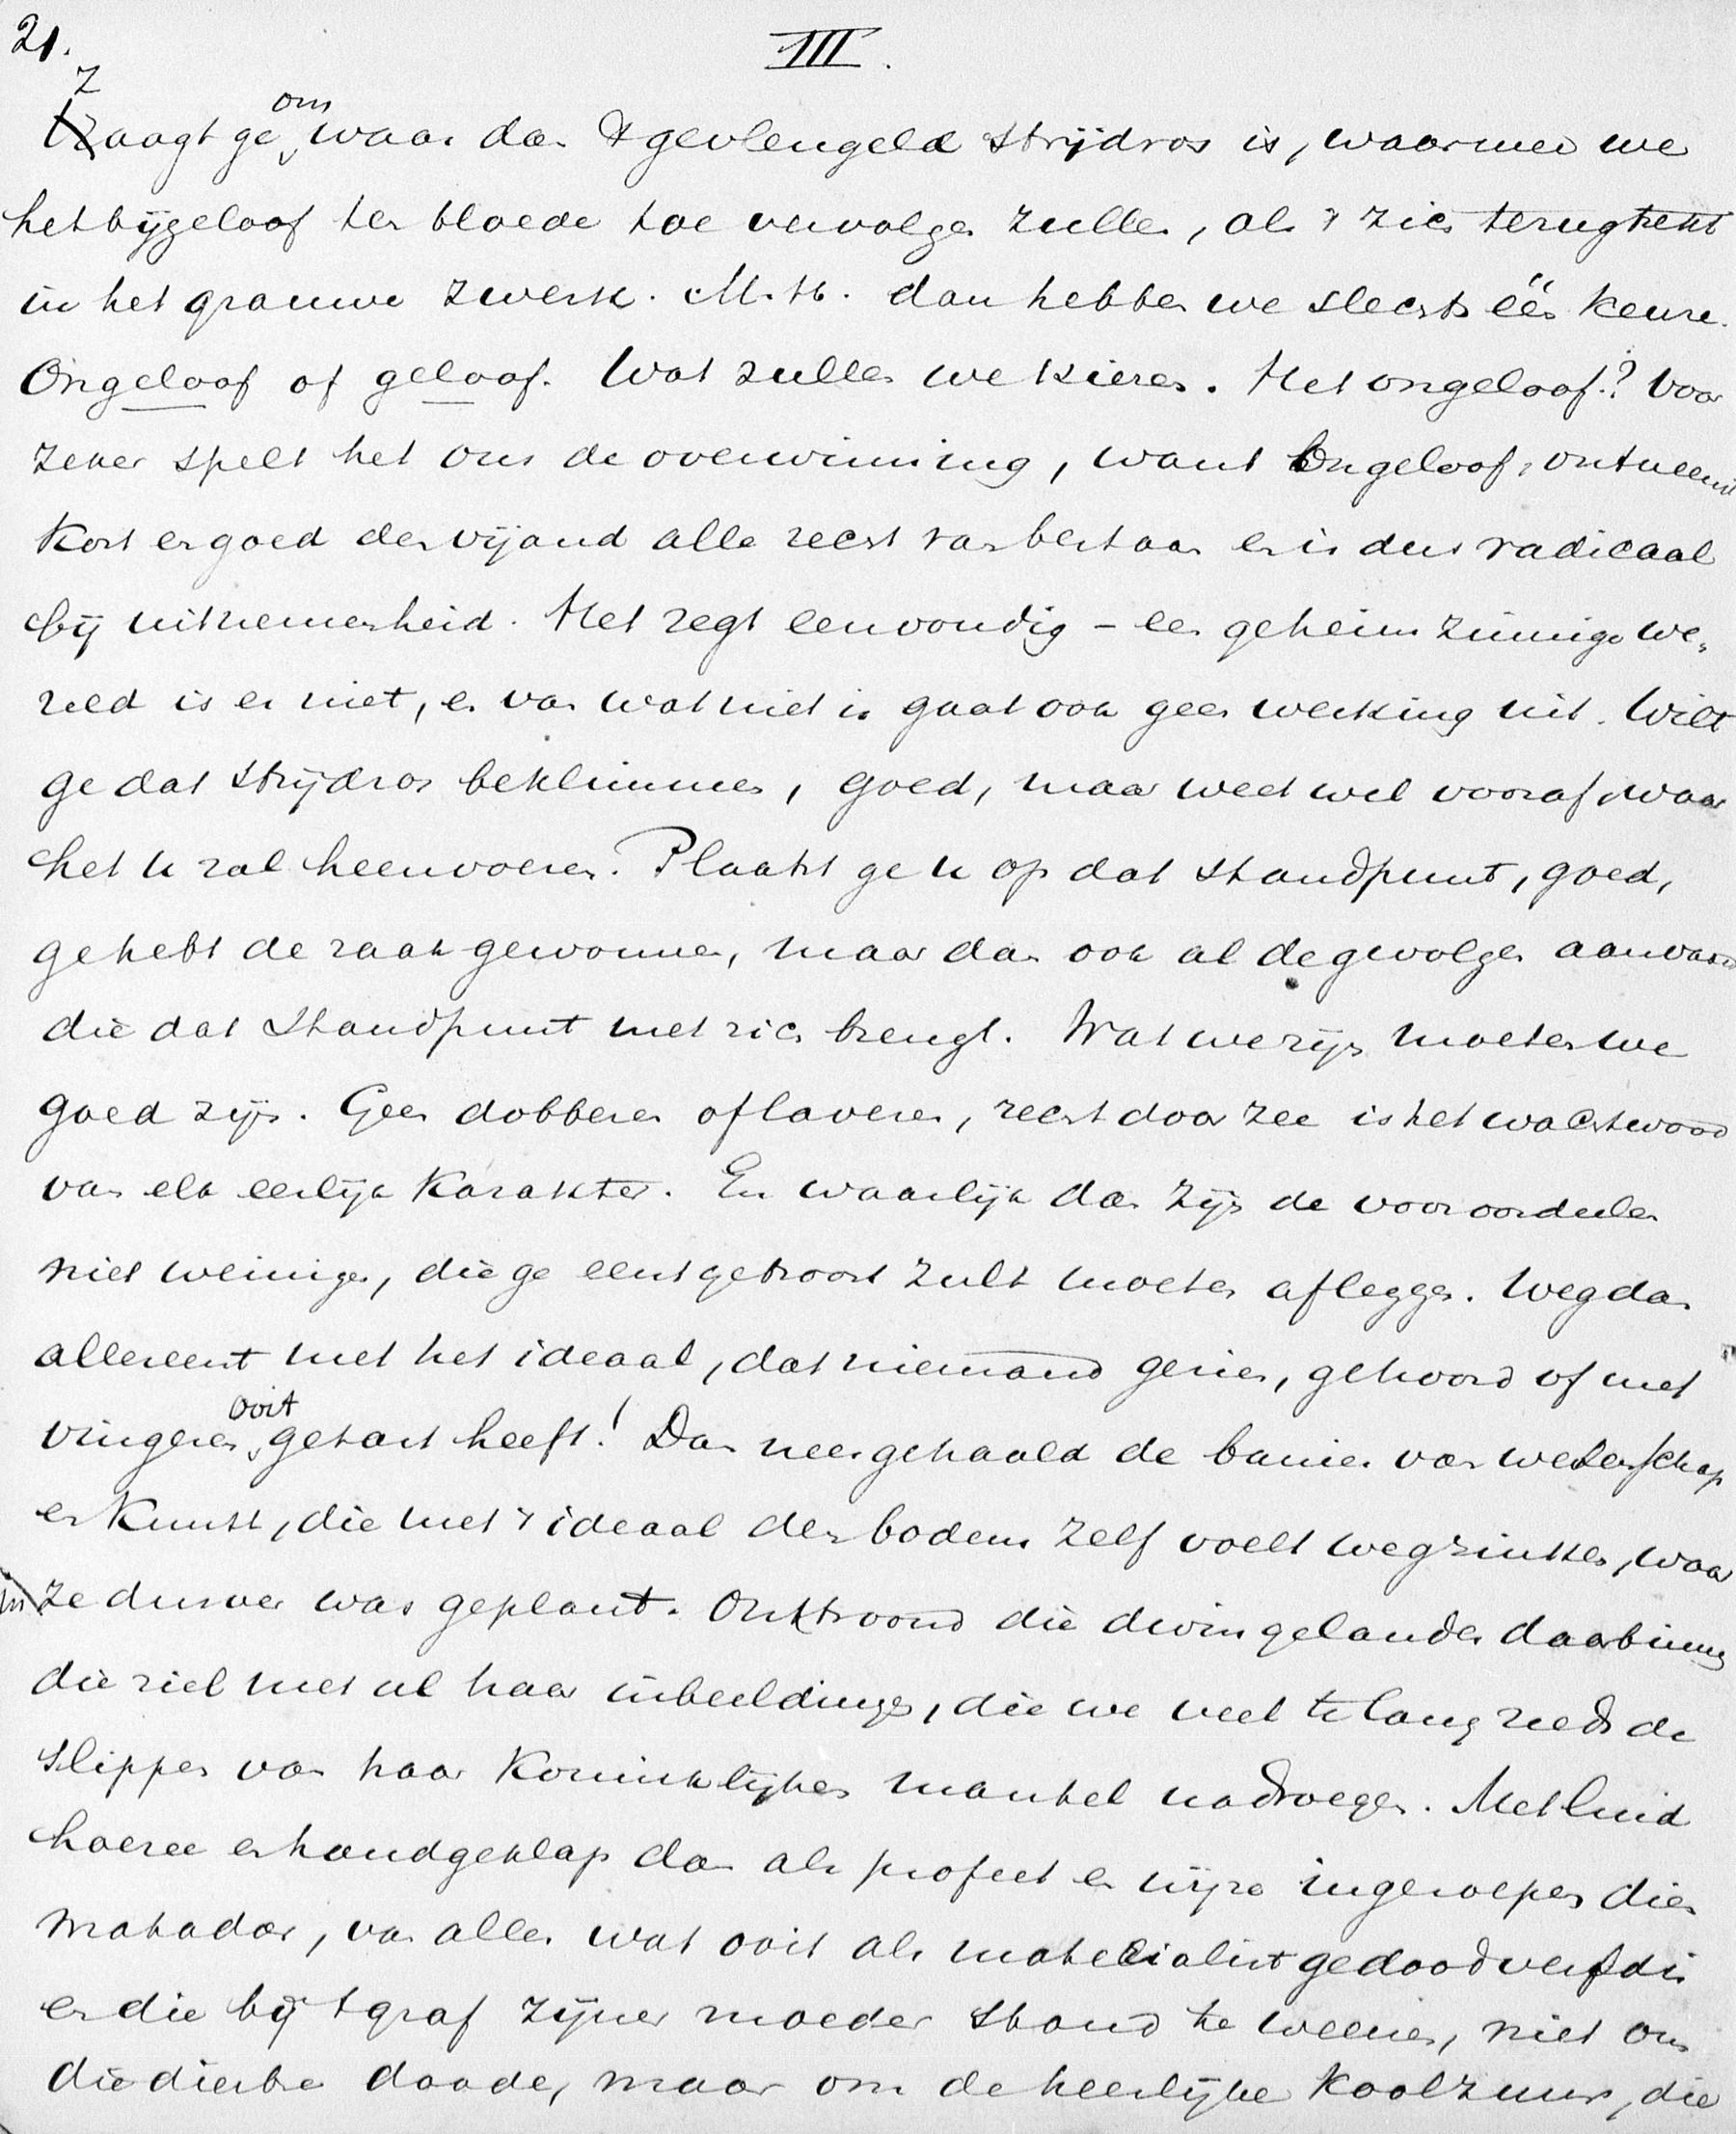 21.
III.
Zaagt ge om waar dan 't gevleugeld strijdros is, waarmee we
het bijgeloof ten bloede toe vervolgen zullen, als 't zich terugtrekt
in het grauwe zwerk. M. H. dan hebben we slechts één keuze.
Ongeloof of geloof. Wat zullen we kiezen. Het ongeloof? Voor
zeker spelt het ons de overwinning, want Ongeloof, ontneemt
kort en goed den vijand alle recht van bestaan en is dus radicaal
bij uitnemenheid. Het zegt eenvoudig – een geheimzinnige we-
reld is er niet, en van wat niet is gaat ook geen werking uit. Wilt
ge dat strijdros beklimmen, goed, maar weet wel vooraf waar
het u zal heenvoeren. Plaatst ge u op dat standpunt, goed,
ge hebt de zaak gewonnen, maar dan ook al de gevolgen aanvaard
die dat standpunt met zich brengt. Wat we zijn moeten we
goed zijn. Geen dobberen of laveren, recht door zee is het wachtwoord
van elk eerlijk karakter. En waarlijk dan zijn de vooroordeelen
niet weinige, die ge eerst getroost zult moeten afleggen. Weg dan
allereerst met het ideaal, dat niemand gezien, gehoord of met
vingeren ooit getast heeft! Dan neergehaald de banier van wetenschap
en Kunst, die met 't ideaal den bodem zelf voelt wegzinken, waar
in ze dusver was geplant. Onttroond die dwingelandes daarbinnen
die ziel met al haar inbeeldingen, die we veel te lang reeds de
slippen van haar Koninklijken mantel nadroegen. Met luid
hoezee en handgeklap dan als profeet en wijze ingeroepen dien
matador, van allen wat ooit als materialist gedoodverfd is
en die bij 't graf zijner moeder stond te weenen, niet om
die dierbre doode, maar om de heerlijke Koolzuur, die